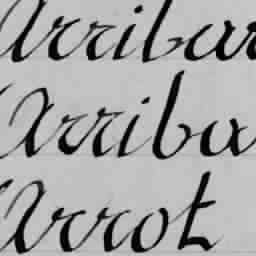 Arribar
Arriba
Arrot